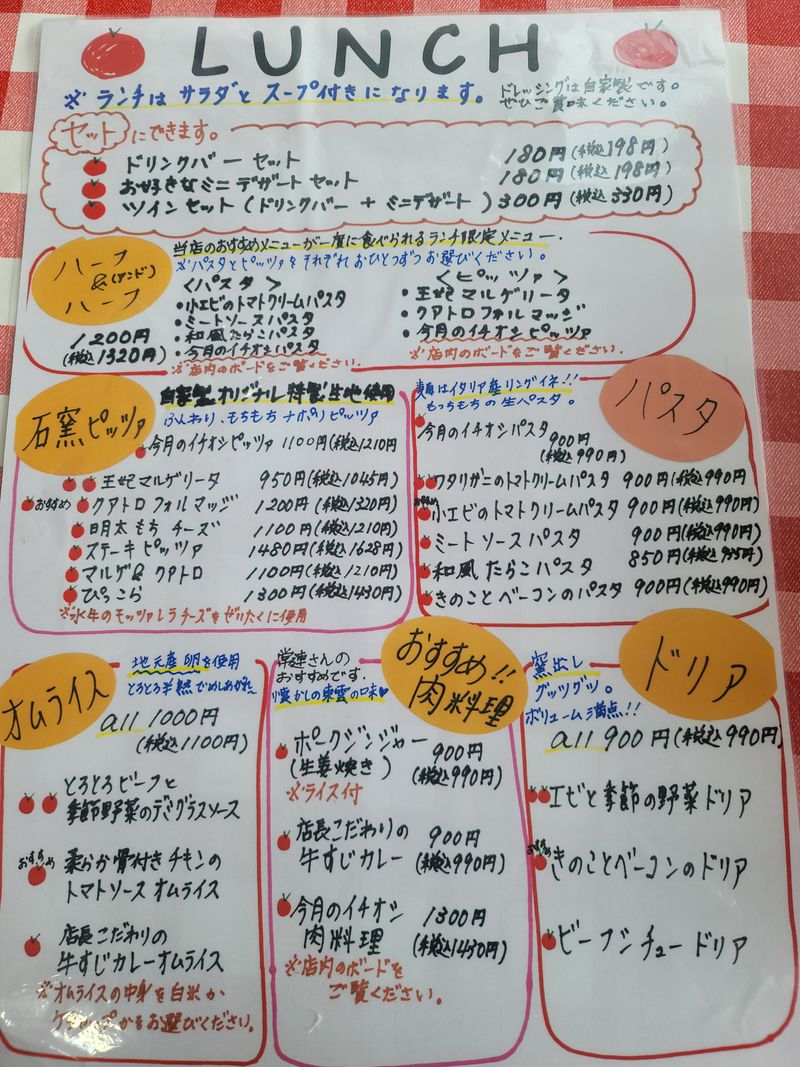 LUNCH
※ランチはサラダとスープ付きになります。
ドレッシングは自家製です。
ぜひご賞味ください。
セットにできます。
ドリンクバーセット 180円(税込198円)
お好きなミニデザートセット 180円(税込198円)
ツインセット(ドリンクバー+ミニデザート) 300円(税込330円)
ハーフ
&(アンド)
ハーフ
1200円
(税込1320円)
当店のおすすめメニューが一度に食べられるランチ限定メニュー.
※パスタとピッツァをそれぞれおひとつずつお選びください。
<パスタ>
・小エビのトマトクリームパスタ
・ミートソースパスタ
・和風たらこパスタ
・今月のイチオシパスタ
※店内のボードをご覧ください.
<ピッツァ>
・王妃マルゲリータ
・クアトロフォルマッジ
・今月のイチオシピッツァ
※店内のボードをご覧ください。
石窯ピッツァ
自家製オリジナル特製生地使用
ふんわり、もちもちナポリピッツァ
今月のイチオシピッツァ 1100円(税込1210円
王妃マルゲリータ 950円(税込1045円)
おすすめ クアトロフォルマッジ 1200円(税込1320円)
明太もちチーズ 1100円(税込1210円)
ステーキピッツァ 1480円(税込1628円)
マルゲ&クアトロ 1100円(税込1210円)
ぴっこら 1300円(税込1430円)
※水牛のモッツァレラチーズをぜいたくに使用
パスタ
麺はイタリア産リングイネ!!
もっちもちの生パスタ。
今月のイチオシパスタ
900円
(税込990円)
ワタリガニのトマトクリームパスタ 900円(税込990円)
おすすめ 小エビのトマトクリームパスタ 900円(税込990円)
ミートソースパスタ 900円(税込990円)
和風たらこパスタ 850円(税込935円)
きのことベーコンのパスタ 900円(税込990円)
オムライス
地元産卵を使用
とろとろ半熟でめしあがれ
all 1000円
(税込1100円)
とろとろビーフと
季節野菜のデミグラスソース
おすすめ
柔らか骨付きチキンの
トマトソースオムライス
店長こだわりの
牛すじカレーオムライス
※オムライスの中身を白米か
ケチャップかをお選びください。
おすすめ!!
肉料理
常連さんの
おすすめです。
懐かしの東雲の味♥
ポークジンジャー
(生姜焼き)
900円
(税込990円)
※ライス付
店長こだわりの
牛すじカレー
900円
(税込990円)
今月のイチオシ
肉料理
1300円
(税込1430円)
※店内のボードを
ご覧ください。
ドリア
窯出し
グッツグツ。
ボリューム満点!!
all 900円(税込990円)
エビと季節の野菜ドリア
おすすめ
きのことベーコンのドリア
ビーフシチュードリア